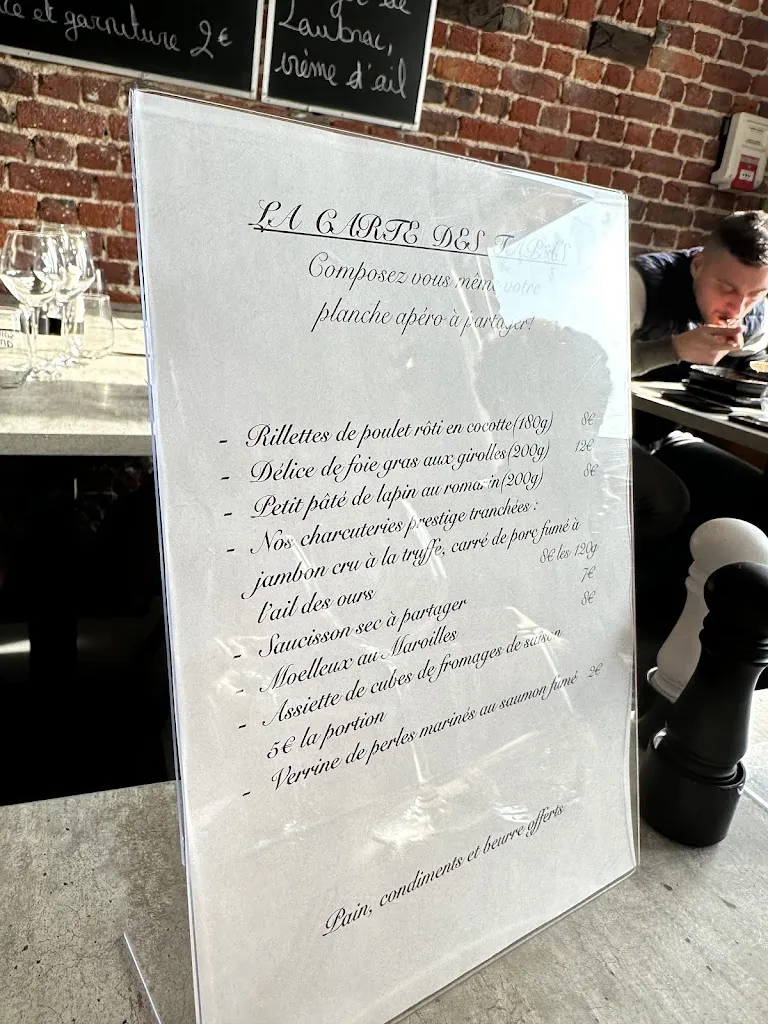 et garniture 2€
Laubrac,
crème d'ail
LA CARTE DES TAPAS
Composez vous même votre
planche apéro à partager!
- Rillettes de poulet rôti en cocotte(180g) 8€
- Délice de foie gras aux girolles(200g) 12€
- Petit pâté de lapin au romarin(200g) 8€
- Nos charcuteries prestige tranchées :
jambon cru à la truffe, carré de porc fumé à
l'ail des ours 8€ les 120g
- Saucisson sec à partager 7€
- Moelleux au Maroilles 8€
- Assiette de cubes de fromages de saison
5€ la portion
- Verrine de perles marinés au saumon fumé 2€
Pain, condiments et beurre offerts